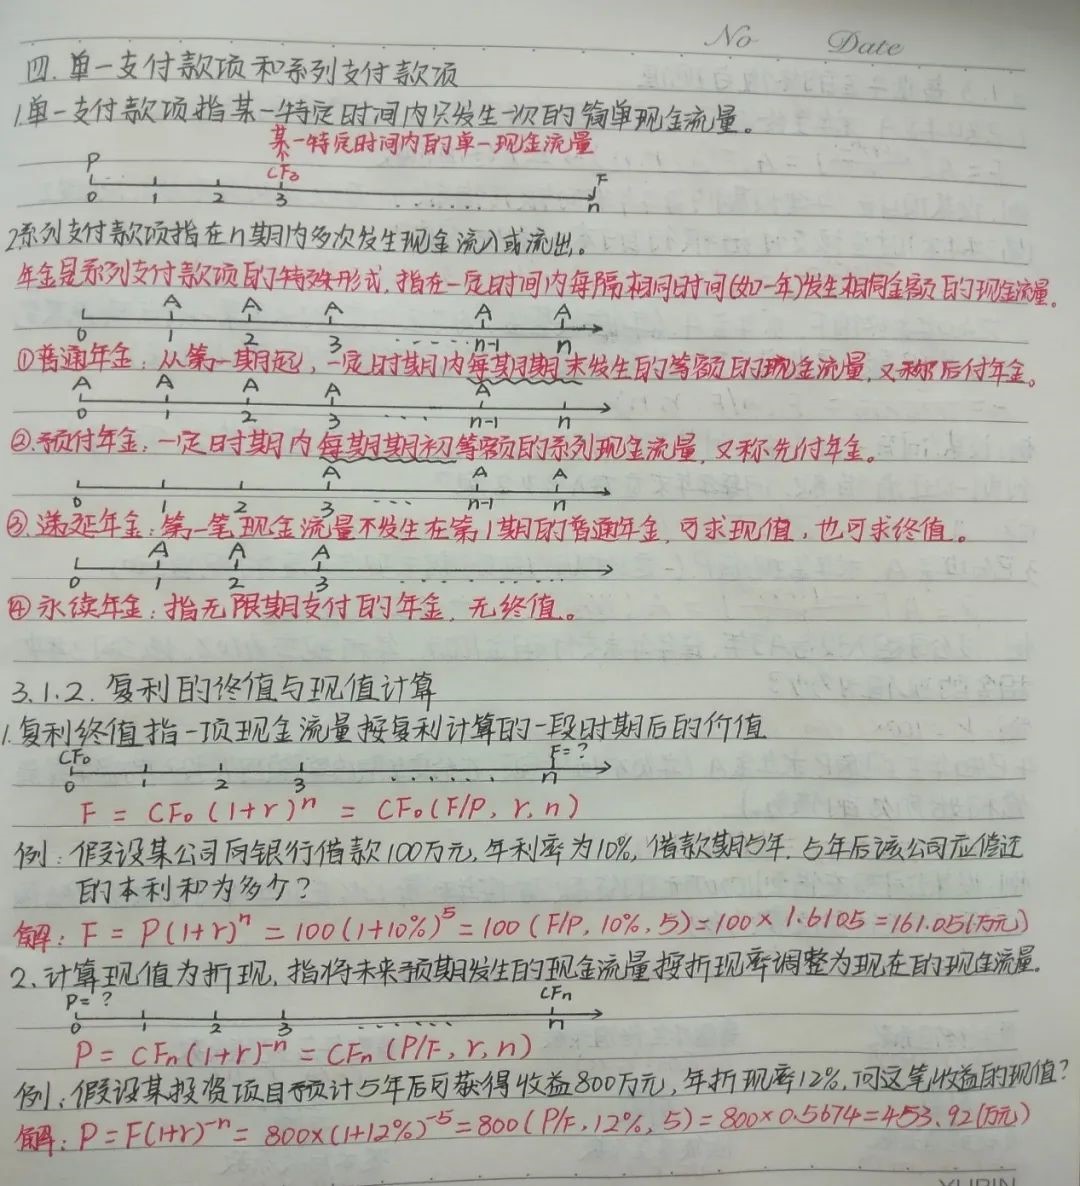 No Date
四.单一支付款项和系列支付款项
1.单一支付款项指某一特定时间内只发生一次的简单现金流量。
某一特定时间内的单一现金流量
P CF3 F
0 1 2 3 ...... n
2.系列支付款项指在n期内多次发生现金流入或流出。
年金是系列支付款项的特殊形式,指在一定时间内每隔相同时间(如一年)发生相同金额的现金流量。
A A A A A
0 1 2 3 ...... n-1 n
①普通年金:从第一期起,一定时期内每期期末发生的等额的现金流量,又称后付年金。
A A A A A
0 1 2 3 .... n-1 n
②预付年金:一定时期内每期期初等额的系列现金流量,又称先付年金。
A A A
0 1 2 3 .... n-1 n
③递延年金:第一笔现金流量不发生在第1期的普通年金,可求现值,也可求终值。
A A A
0 1 2 3
④永续年金:指无限期支付的年金,无终值。
3.1.2.复利的终值与现值计算
1.复利终值指一项现金流量按复利计算的一段时期后的价值
CF0 F=?
0 1 2 3 ...... n
F = CF0 (1+r)^n = CF0 (F/P, r, n)
例:假设某公司向银行借款100万元,年利率为10%,借款期5年,5年后该公司应偿还
的本利和为多少?
解:F = P(1+r)^n = 100(1+10%)^5 = 100(F/P, 10%, 5) = 100×1.6105 = 161.05(万元)
2.计算现值为折现,指将未来预期发生的现金流量按折现率调整为现在的现金流量。
P=? CFn
0 1 2 3 ...... n
P = CFn(1+r)^-n = CFn (P/F, r, n)
例:假设某投资项目预计5年后可获得收益800万元,年折现率12%,问这笔收益的现值?
解:P=F(1+r)^-n = 800×(1+12%)^-5 = 800(P/F, 12%, 5) = 800×0.5674=453.92(万元)